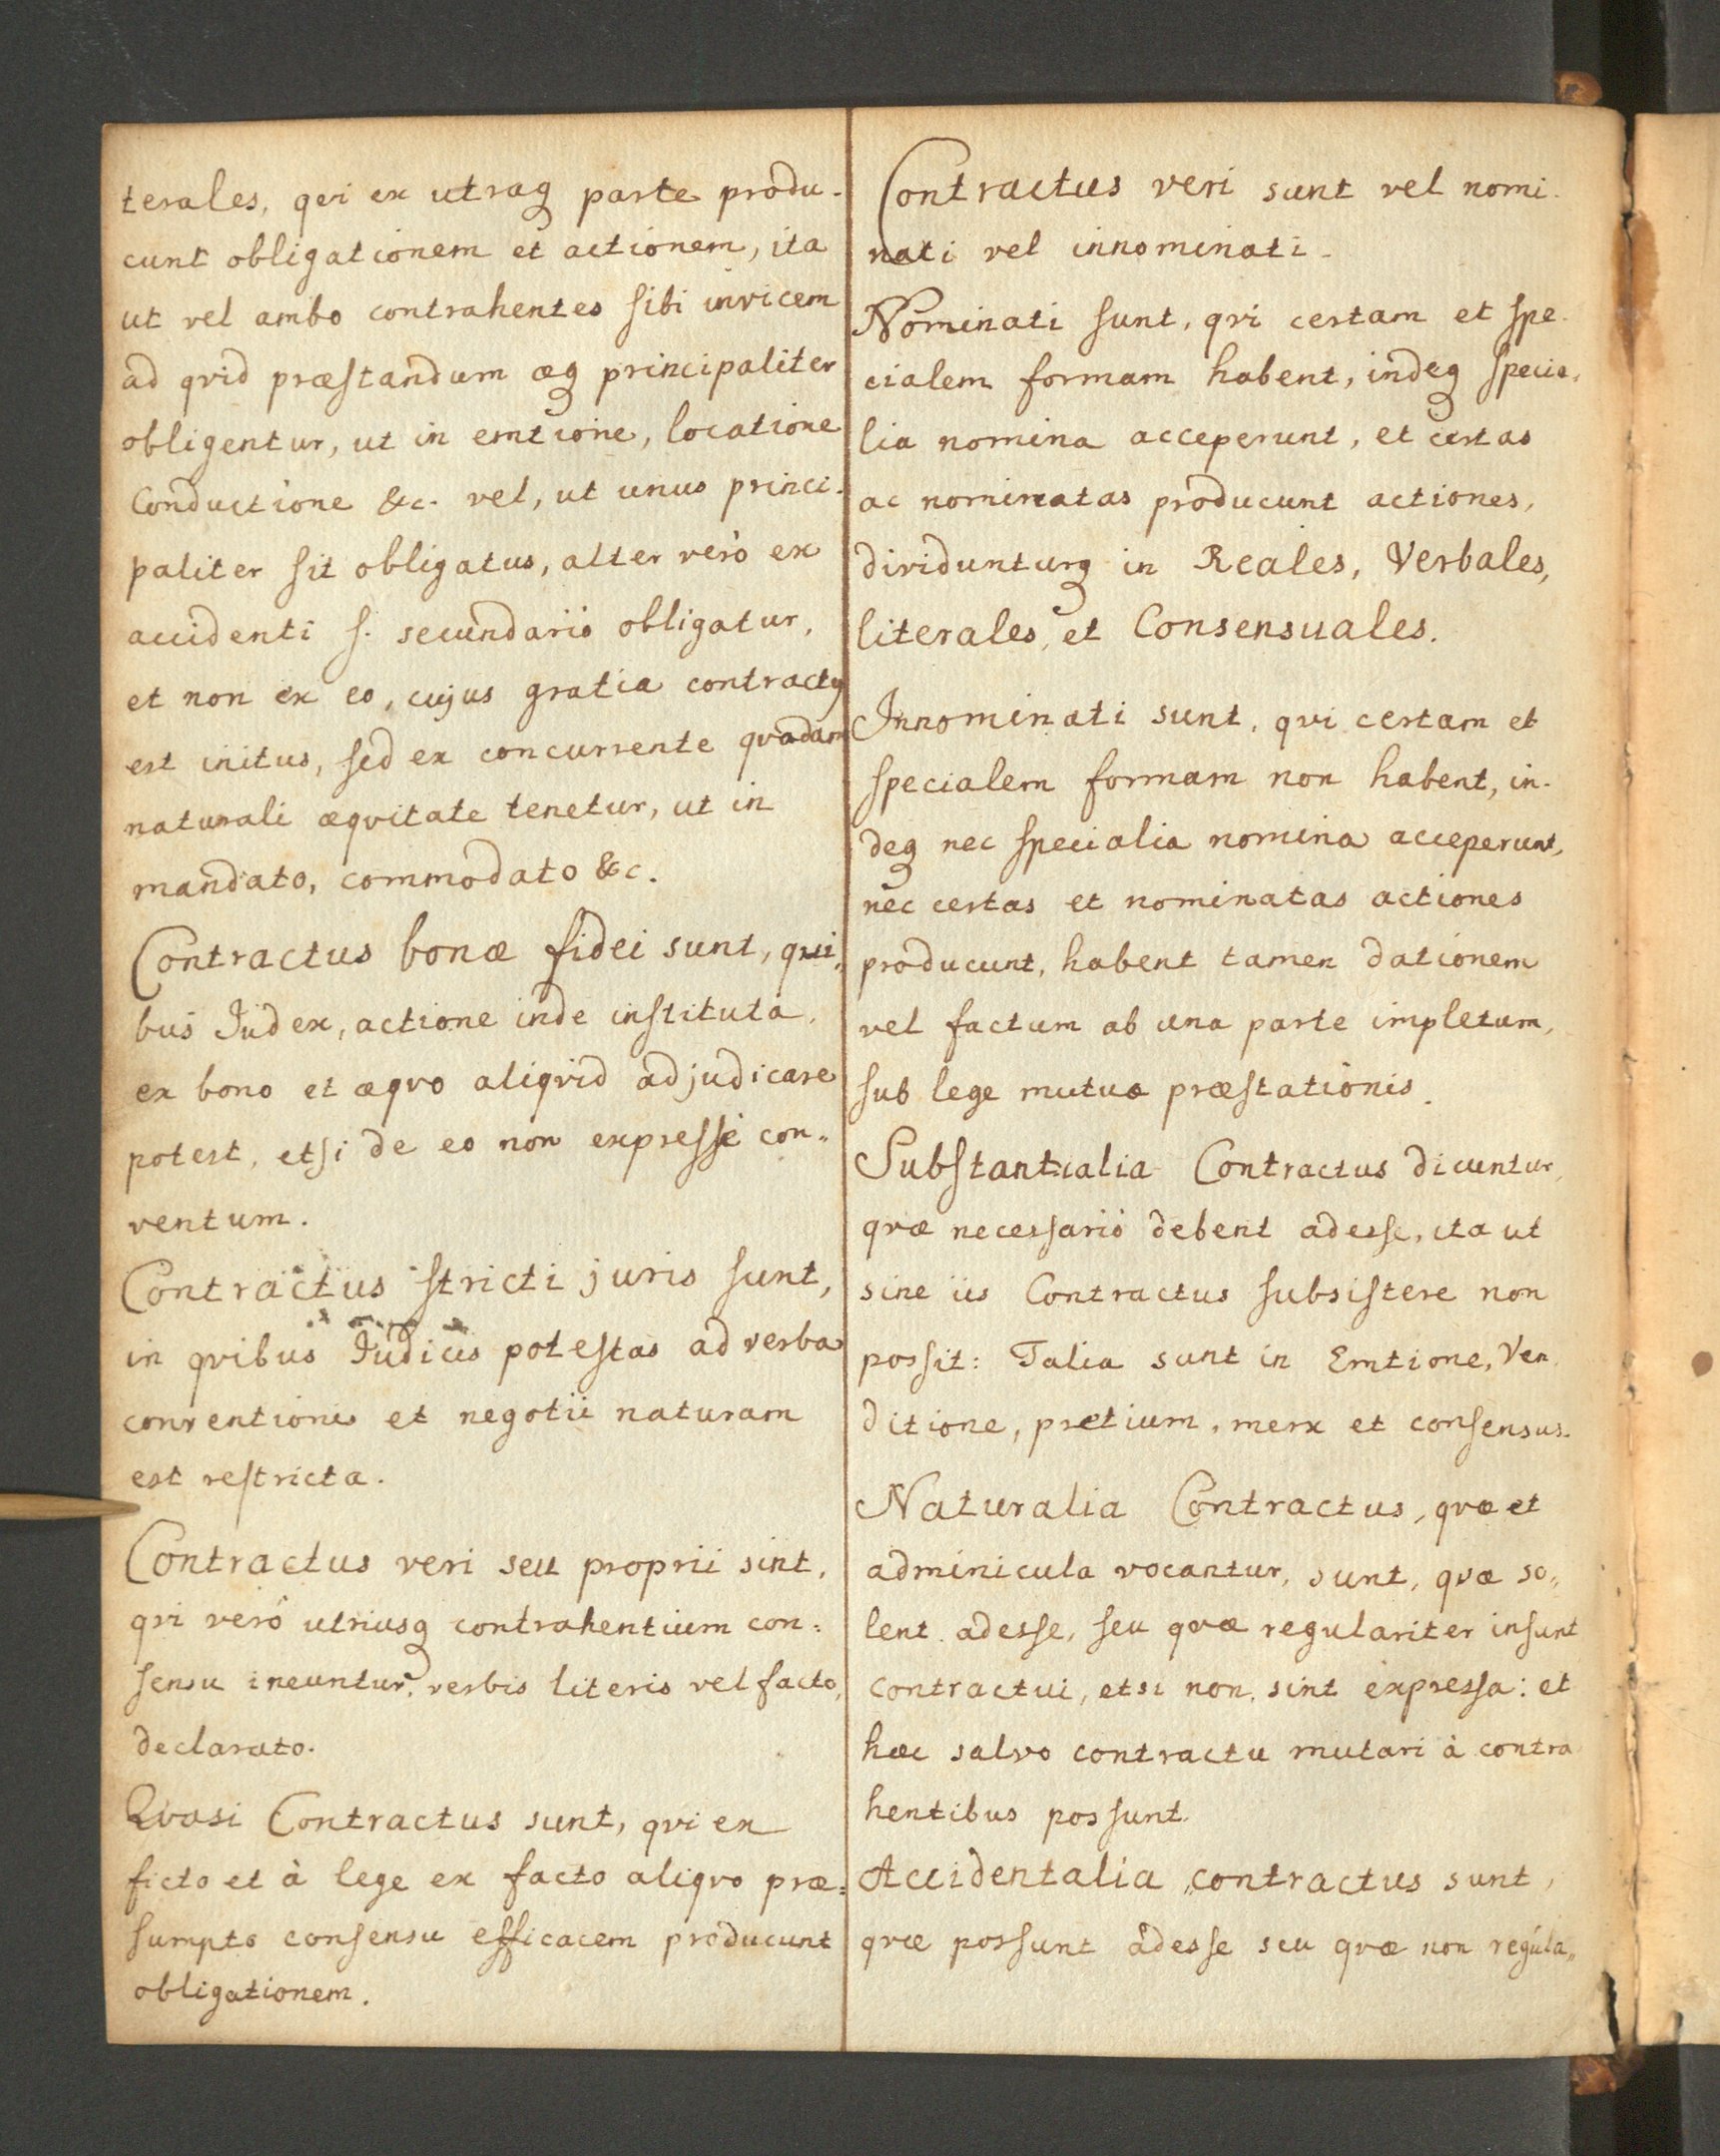 terales, qvi ex utraq parte produ-
cunt obligationem et actionem, ita
ut vel ambo contrahentes sibi invicem
ad qvid præstandum æq principaliter
obligentur, ut in emtione, locatione
Conductione &c. vel, ut unus princi-
paliter sit obligatus, alter verò ex
accidenti s. secundariò obligatur,
et non ex eo, cujus gratia contractq
est initus, sed ex concurrente qvadam
naturali æqvitate tenetur, ut in
mandato, commodato &c.
Contractus bonæ fidei sunt, qui„
bus Judex, actione inde instituta,
ex bono et æqvo aliqvid adjudicare
potest, etsi de eo non expressè con„
ventum.
Contractus stricti juris sunt,
in qvibus Judicis potestas ad verba
conventionis et negotii naturam
est restricta.
Contractus veri seu proprii sint,
qvi verò utriusq contrahentium con=
sensu ineuntur, verbis literis vel facto,
declarato.
Qvasi Contractus sunt, qvi ex
ficto et à lege ex facto aliqvo præ=
sumpto consensu efficacem producunt
obligationem.
Contractus veri sunt vel nomi-
nati vel innominati.
Nominati sunt, qvi certam et spe-
cialem formam habent, indeq specia„
lia nomina acceperunt, et certas
ac nominatas producunt actiones,
dividunturq in Reales, Verbales,
literales, et Consensuales.
Innominati sunt, qvi certam et
specialem formam non habent, in-
deq nec specialia nomina acceperunt,
nec certas et nominatas actiones
producunt, habent tamen dationem
vel factum ab una parte impletum,
sub lege mutuæ præstationis.
Substantialia Contractus dicuntur,
qvæ necessariò debent adesse, ita ut
sine iis Contractus subsistere non
possit: Talia sunt in Emtione, Ven
ditione, pretium, merx et consensus.
Naturalia Contractus, qvæ et
adminicula vocantur, sunt, qvæ so„
lent adesse, seu qvæ regulariter insunt
contractui, etsi non sint expressa: et
hæc salvo contractu mutari à contra
hentibus possunt.
Accidentalia contractus sunt,
qvæ possunt adesse seu qvæ non regula„